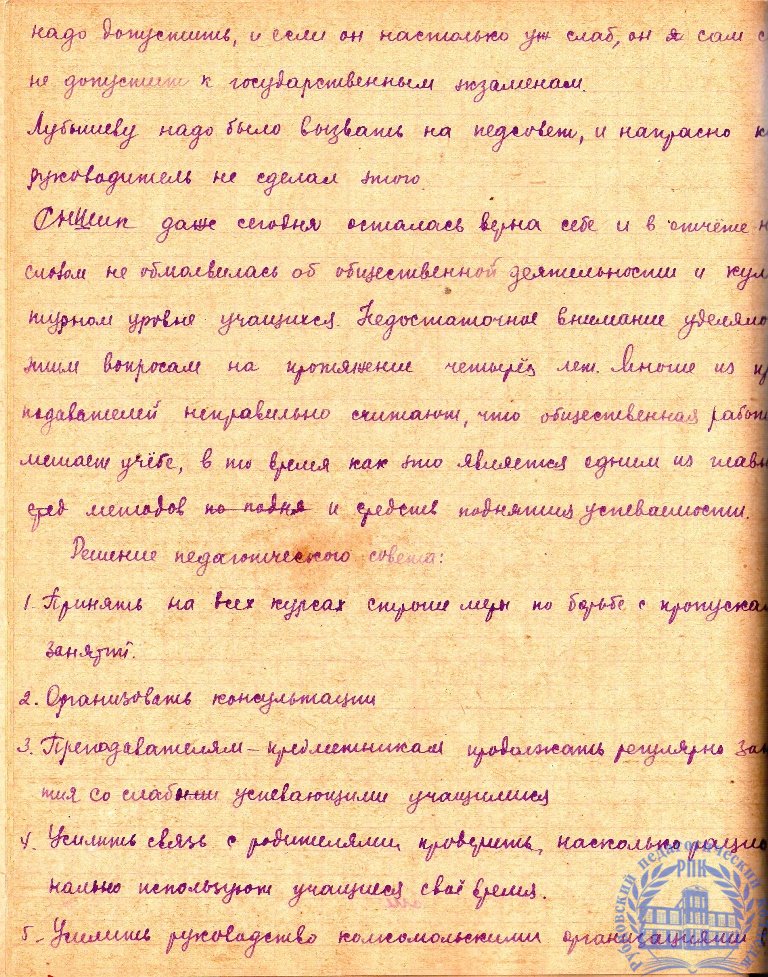 надо допустить, и если он настолько уж слаб, он я сам с
не допустит к государственным экзаменам.
Лубышеву надо было вызвать на педсовет, и напрасно к
руководитель не сделал этого.
даже сегодня осталась верна себе и в отчёте н
словом не обмолвилась об общественной деятельности и куль
турном уровне учащихся. Недостаточное внимание уделяло
этим вопросам на протяжение четырёх лет. Многие из пр
подавателей неправильно считают, что общественная работ
мешает учёбе, в то время как это является одним из главн
сред методов по подня и средств поднятия успеваемости.
Решение педагогического совета:
1. Принять на всех курсах строгие меры по борьбе с пропускам
занятий.
2. Организовать консультации
3. Преподавателям – предметникам продолжать регулярно зан
тия со слабыми успевающими учащимися
4. Усилить связь с родителями, проверить, насколько рацио
нально используют учащиеся своё время.
5. Усилить руководство комсомольскими организациями
Рубцовский педагогический
РПК